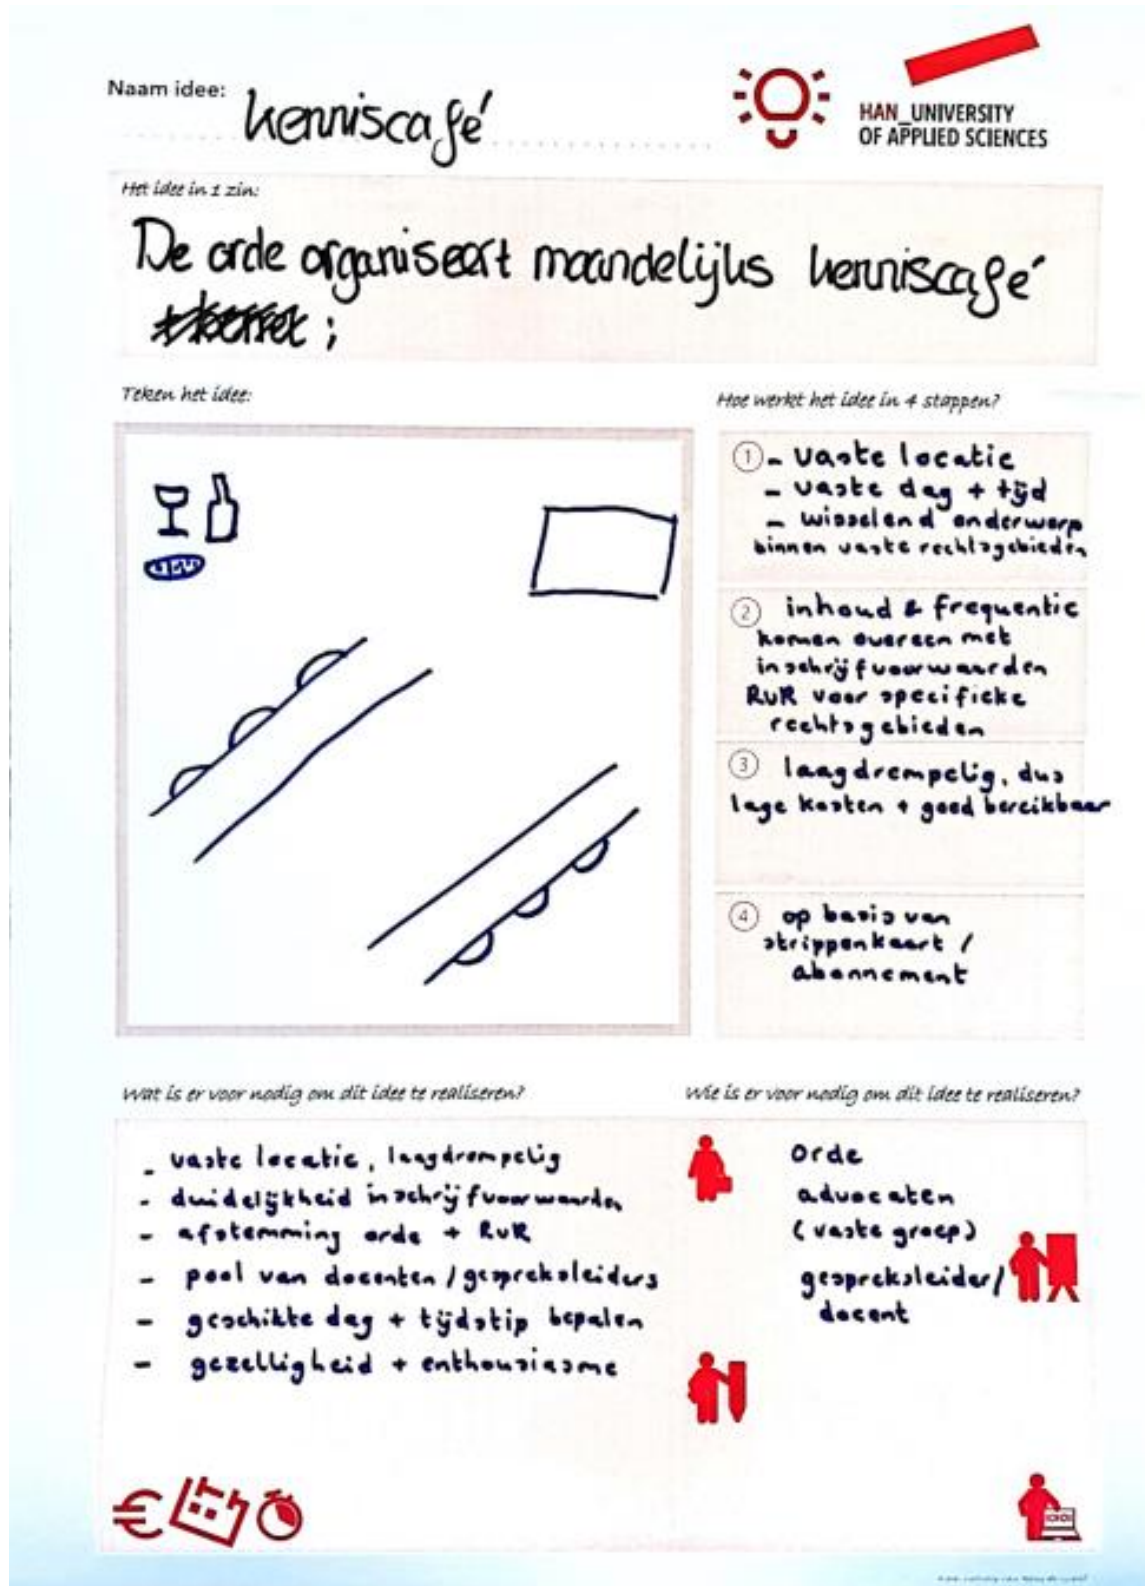 Naam idee: kenniscafé
HAN_UNIVERSITY
OF APPLIED SCIENCES
Het idee in 1 zin:
De orde organiseert maandelijks kenniscafé
;
Teken het idee:
Hoe werkt het idee in 4 stappen?
1 - vaste locatie
- vaste dag + tijd
- wisselend onderwerp
binnen vaste rechtsgebieden
2 inhoud & frequentie
komen overeen met
inschrijfvoorwaarden
RvR voor specifieke
rechtsgebieden
3 laagdrempelig, dus
lage kosten + goed bereikbaar
4 op basis van
strippenkaart /
abonnement
Wat is er voor nodig om dit idee te realiseren?
- vaste locatie, laagdrempelig
- duidelijkheid inschrijfvoorwaarden
- afstemming orde + RvR
- pool van docenten / gespreksleiders
- geschikte dag + tijdstip bepalen
- gezelligheid + enthousiasme
Wie is er voor nodig om dit idee te realiseren?
Orde
advocaten
(vaste groep)
gespreksleider/
docent